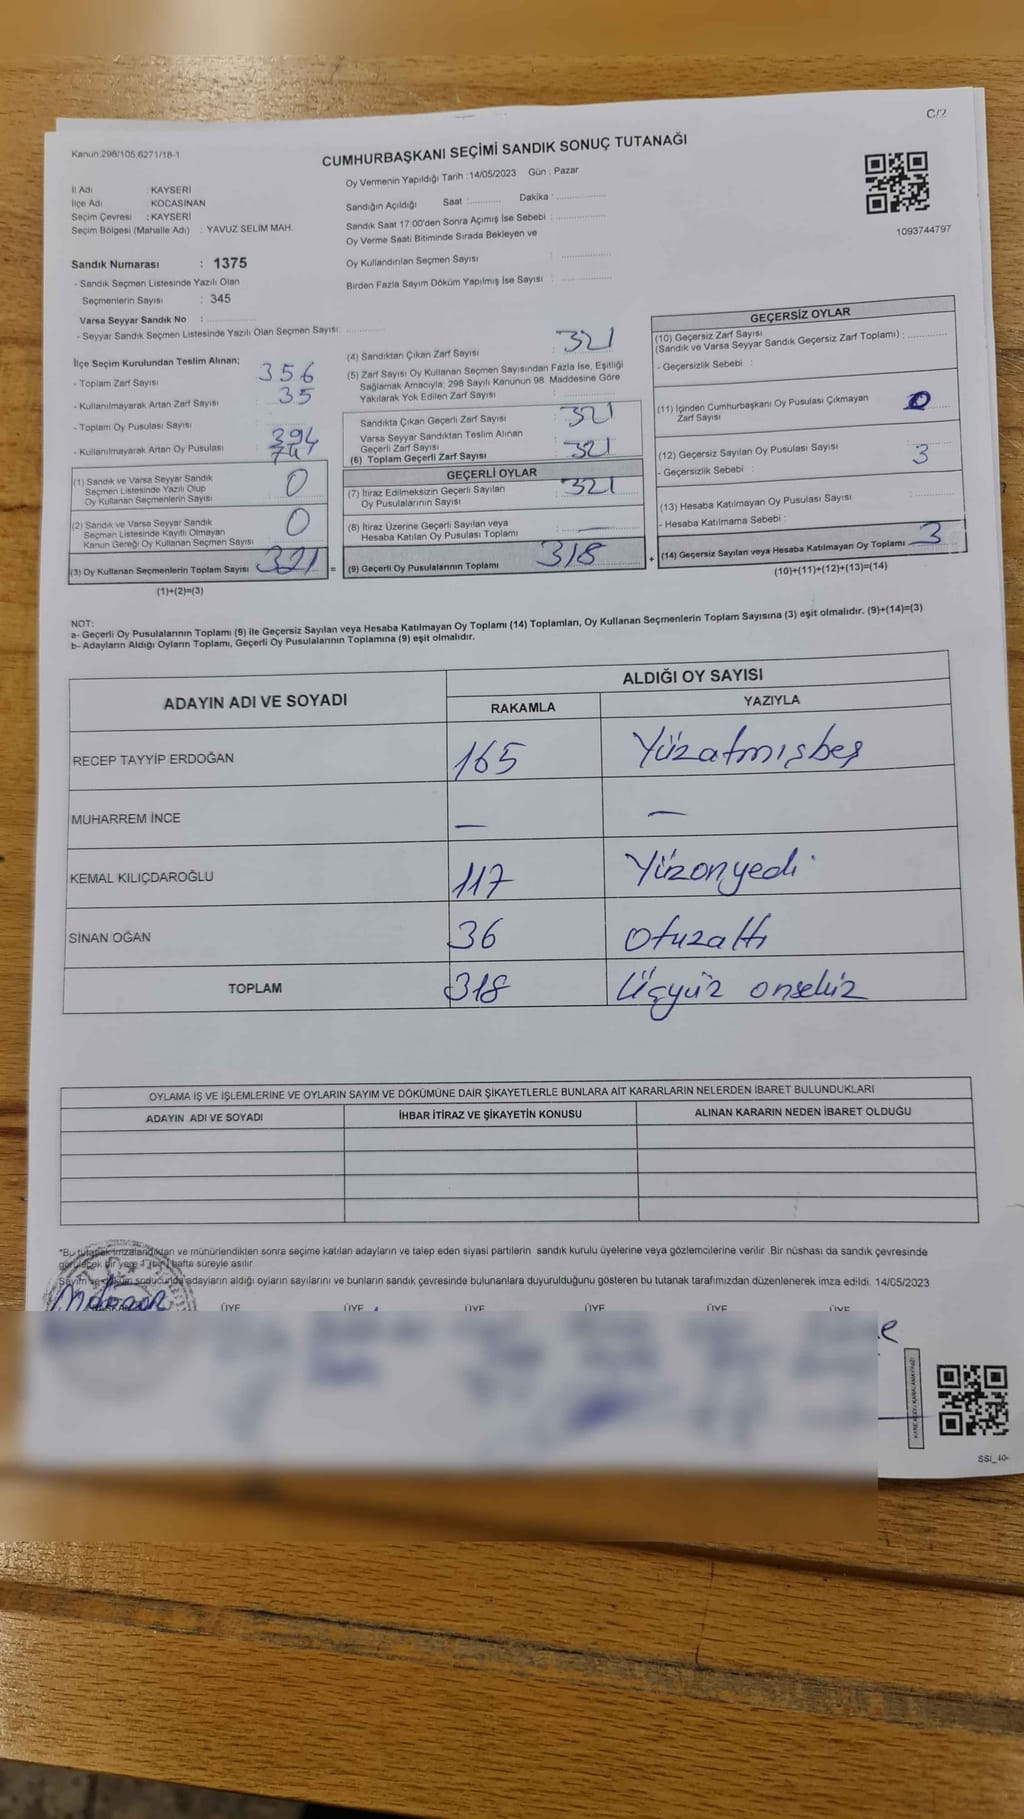 C/2
Kanun:298/105:6271/18-1
CUMHURBAŞKANI SEÇİMİ SANDIK SONUÇ TUTANAĞI
Oy Vermenin Yapıldığı Tarih :14/05/2023 Gün : Pazar
İl Adı : KAYSERİ
İlçe Adı : KOCASİNAN
Seçim Çevresi : KAYSERİ
Seçim Bölgesi (Mahalle Adı) : YAVUZ SELİM MAH.
Sandık Numarası : 1375
- Sandık Seçmen Listesinde Yazılı Olan
Seçmenlerin Sayısı : 345
Varsa Seyyar Sandık No :
- Seyyar Sandık Seçmen Listesinde Yazılı Olan Seçmen Sayısı:
Sandığın Açıldığı Saat : Dakika :
Sandık Saat 17:00'den Sonra Açımış İse Sebebi :
Oy Verme Saati Bitiminde Sırada Bekleyen ve
Oy Kullandırılan Seçmen Sayısı :
Birden Fazla Sayım Döküm Yapılmış İse Sayısı :
1093744797
İlçe Seçim Kurulundan Teslim Alınan;
- Toplam Zarf Sayısı 356
- Kullanılmayarak Artan Zarf Sayısı 35
- Toplam Oy Pusulası Sayısı 394
- Kullanılmayarak Artan Oy Pusulası
(1) Sandık ve Varsa Seyyar Sandık
Seçmen Listesinde Yazılı Olup
Oy Kullanan Seçmenlerin Sayısı 0
(2) Sandık ve Varsa Seyyar Sandık
Seçmen Listesinde Kayıtlı Olmayan
Kanun Gereği Oy Kullanan Seçmen Sayısı 0
(3) Oy Kullanan Seçmenlerin Toplam Sayısı 321 =
(1)+(2)=(3)
(4) Sandıktan Çıkan Zarf Sayısı 321
(5) Zarf Sayısı Oy Kullanan Seçmen Sayısından Fazla İse, Eşitliği
Sağlamak Amacıyla; 298 Sayılı Kanunun 98. Maddesine Göre
Yakılarak Yok Edilen Zarf Sayısı :
Sandıkta Çıkan Geçerli Zarf Sayısı 321
Varsa Seyyar Sandıktan Teslim Alınan
Geçerli Zarf Sayısı
(6) Toplam Geçerli Zarf Sayısı 321
GEÇERLİ OYLAR
(7) İtiraz Edilmeksizin Geçerli Sayılan
Oy Pusulalarının Sayısı 321
(8) İtiraz Üzerine Geçerli Sayılan veya
Hesaba Katılan Oy Pusulası Toplamı : —
(9) Geçerli Oy Pusulalarının Toplamı 318 +
GEÇERSİZ OYLAR
(10) Geçersiz Zarf Sayısı
(Sandık ve Varsa Seyyar Sandık Geçersiz Zarf Toplamı) :
- Geçersizlik Sebebi :
(11) İçinden Cumhurbaşkanı Oy Pusulası Çıkmayan
Zarf Sayısı 0
(12) Geçersiz Sayılan Oy Pusulası Sayısı 3
- Geçersizlik Sebebi :
(13) Hesaba Katılmayan Oy Pusulası Sayısı
- Hesaba Katılmama Sebebi :
(14) Geçersiz Sayılan veya Hesaba Katılmayan Oy Toplamı 3
(10)+(11)+(12)+(13)=(14)
NOT:
a- Geçerli Oy Pusulalarının Toplamı (9) ile Geçersiz Sayılan veya Hesaba Katılmayan Oy Toplamı (14) Toplamları, Oy Kullanan Seçmenlerin Toplam Sayısına (3) eşit olmalıdır. (9)+(14)=(3)
b- Adayların Aldığı Oyların Toplamı, Geçerli Oy Pusulalarının Toplamına (9) eşit olmalıdır.
ADAYIN ADI VE SOYADI ALDIĞI OY SAYISI
RAKAMLA YAZIYLA
RECEP TAYYİP ERDOĞAN 165 Yüzatmışbeş
MUHARREM İNCE — —
KEMAL KILIÇDAROĞLU 117 Yüzonyedi
SİNAN OĞAN 36 Otuzaltı
TOPLAM 318 Üçyüz onsekiz
OYLAMA İŞ VE İŞLEMLERİNE VE OYLARIN SAYIM VE DÖKÜMÜNE DAİR ŞİKAYETLERLE BUNLARA AİT KARARLARIN NELERDEN İBARET BULUNDUKLARI
ADAYIN ADI VE SOYADI İHBAR İTİRAZ VE ŞİKAYETİN KONUSU ALINAN KARARIN NEDEN İBARET OLDUĞU
*Bu tutanak imzalandıktan ve mühürlendikten sonra seçime katılan adayların ve talep eden siyasi partilerin sandık kurulu üyelerine veya gözlemcilerine verilir .Bir nüshası da sandık çevresinde
görülecek bir yere 1 (bir) hafta süreyle asılır
Sayım ve döküm sonucunda adayların aldığı oyların sayılarını ve bunların sandık çevresinde bulunanlara duyurulduğunu gösteren bu tutanak tarafımızdan düzenlenerek imza edildi. 14/05/2023
ÜYE ÜYE ÜYE ÜYE ÜYE ÜYE